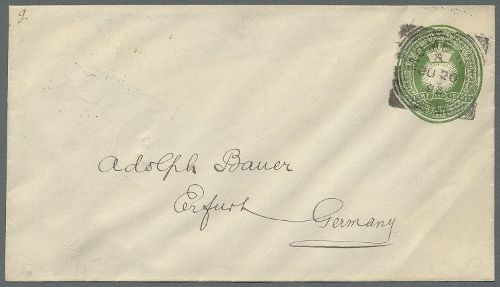 9.
A
JU 26
Adolph Bauer
Erfurt
Germany